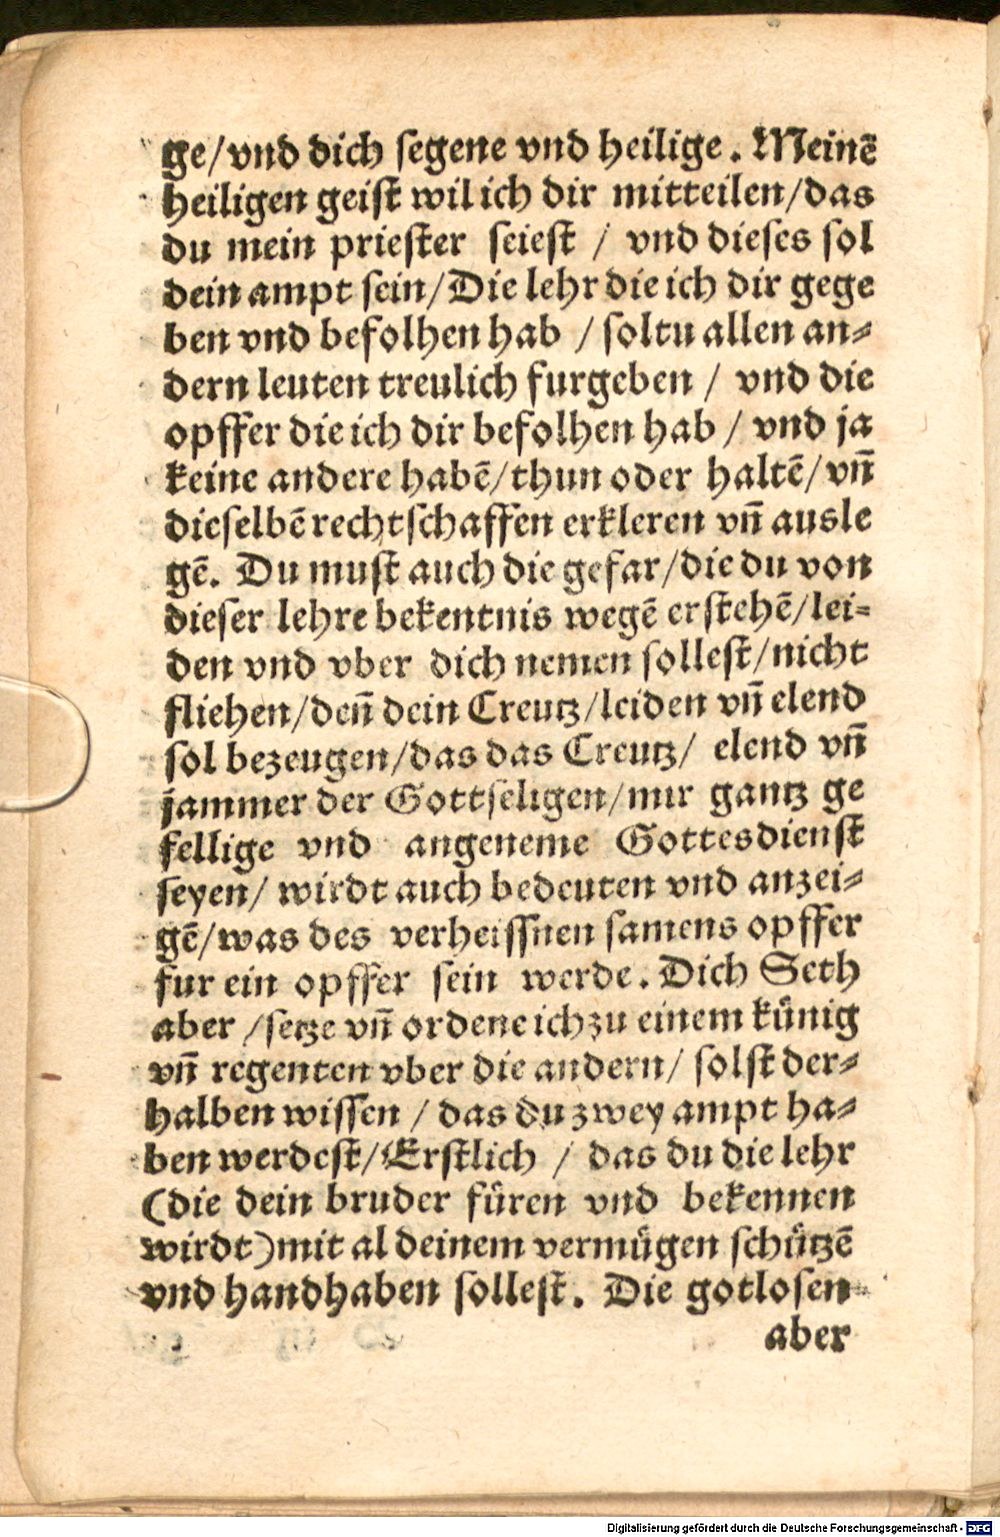 ge/vnd dich segene vnd heilige. Meinē
heiligen geist wil ich dir mitteilen/das
du mein priester seiest / vnd dieses sol
dein ampt sein/Die lehr die ich dir gege
ben vnd befolhen hab /soltu allen an-
dern leuten treulich furgeben / vnd die
opffer die ich dir befolhen hab / vnd ja
keine andere habē/thun oder haltē/vñ
dieselbē rechtschaffen erkleren vñ ausle
gē. Du must auch die gefar/die du von
dieser lehre bekentnis wegē erstehē/lei-
den vnd vber dich nemen sollest/nicht
fliehen/deñ dein Creutz/leiden vñ elend
sol bezeugen/das das Creutz/ elend vñ
jammer der Gottseligen/mir gantz ge
fellige vnd angeneme Gottesdienst
seyen/ wirdt auch bedeuten vnd anzei-
gē/was des verheissnen samens opffer
fur ein opffer sein werde. Dich Seth
aber /setze vñ ordene ich zu einem künig
vñ regenten vber die andern/ solst der-
halben wissen / das du zwey ampt ha-
ben werdest/Erstlich / das du die lehr
(die dein bruder füren vnd bekennen
wirdt)mit al deinem vermügen schützē
vnd handhaben sollest. Die gotlosen
aber
Digitalisierung gefördert durch die Deutsche Forschungsgemeinschaft - DFG